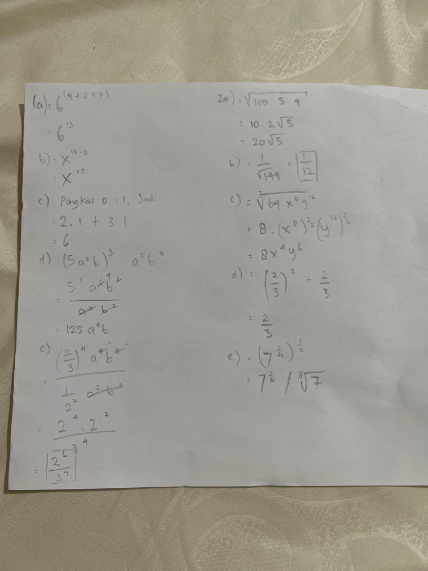 1a) = 6^(4+2+7)
= 6^13
b) = x^
= x^15
c) Pangkat 0 = 1, Jadi:
= 2.1 + 3.1
= 6
d) = (5a²b)³ a²b²
=
= 125 a⁴b
e) = (2/3)⁴ a⁴b⁴
1/2² a³b³
= 2⁴ . 2²
3⁴
=
2a) = √100 . 5 . 4
= 10 . 2√5
= 20√5
b) = 1/√144 = 1/12
c) = √64 x⁸ y¹²
= 8 . (x⁸)^½ (y¹²)^½
= 8x⁴y⁶
d) = (2/3)² ÷ 2/3
= 2/3
e) = (7^¼)^½
= 7^⅛ / ⁸√7